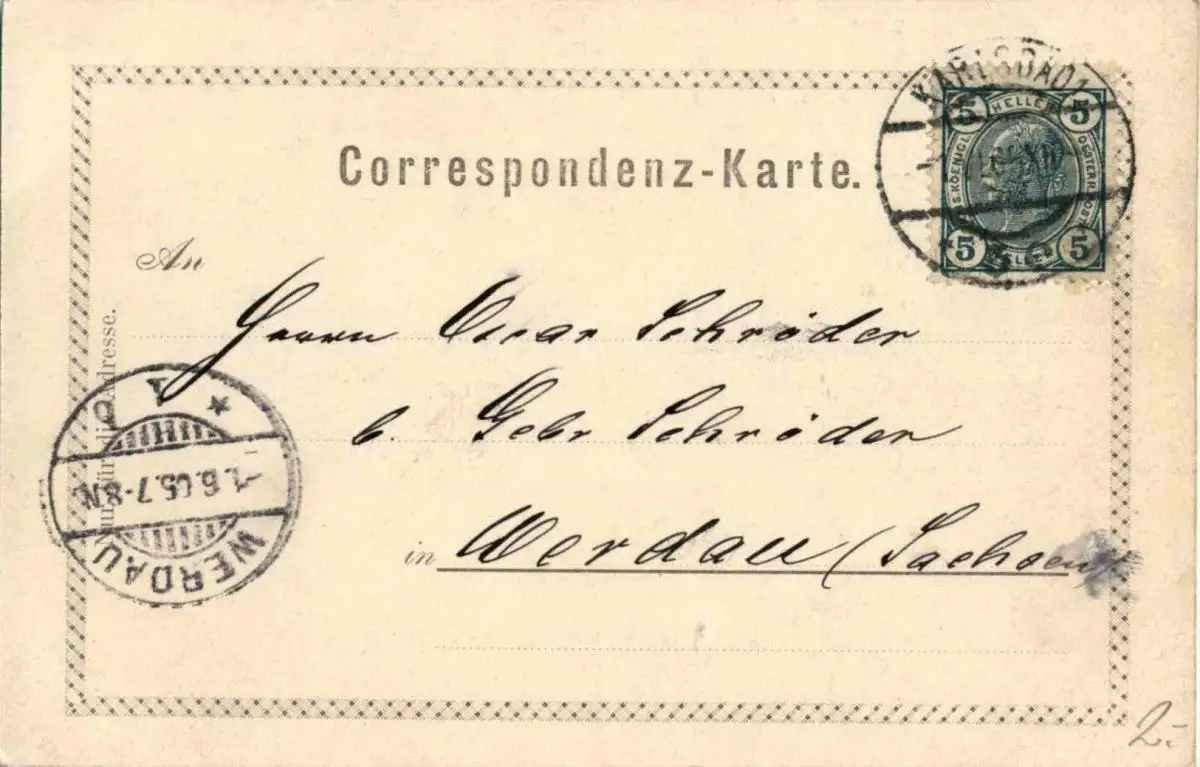 KARLSBAD 1
5 HELLER 5
Correspondenz-Karte.
5 HELLER 5
An
Herrn Oscar Schröder
b. Gebr Schröder
in Werdau (Sachsen)
Nur für die Adresse.
1.6.05.7-8N.
WERDAU
2.-